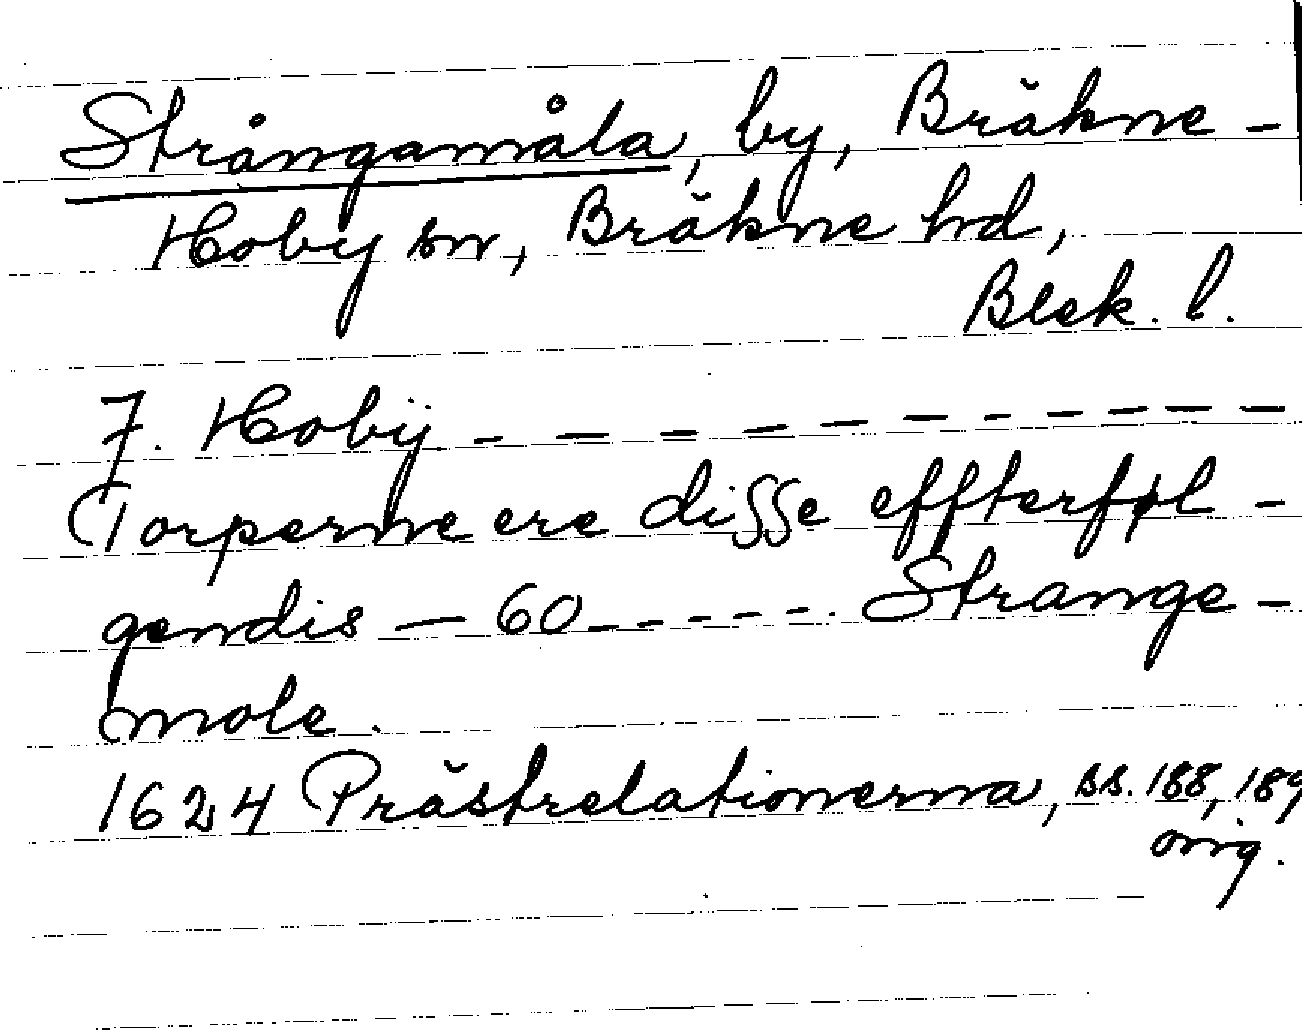 Strångamåla, by, Bräkne-
Hoby sn, Bräkne hd,
Blek. l.
7. Hobÿ - - - - - - - - - - -
Torperne ere disse effterføl-
gendis — 60 - - - - - . Strange-
mole.
1624 Prästrelationerna, ss. 188, 189
orig.